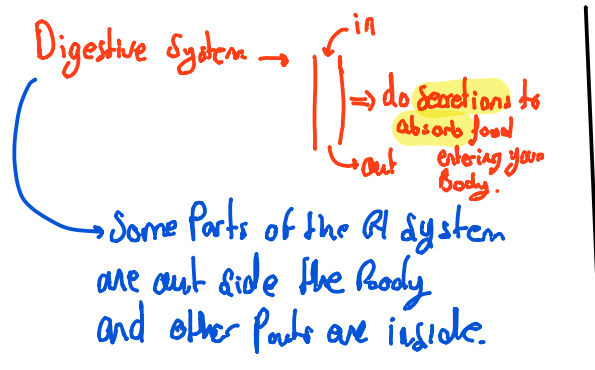 in
Digestive System →
⇒ do Secretions to
absorb food
out entering your
Body.
Some Parts of the GI System
are out side the Body
and other Parts are inside.